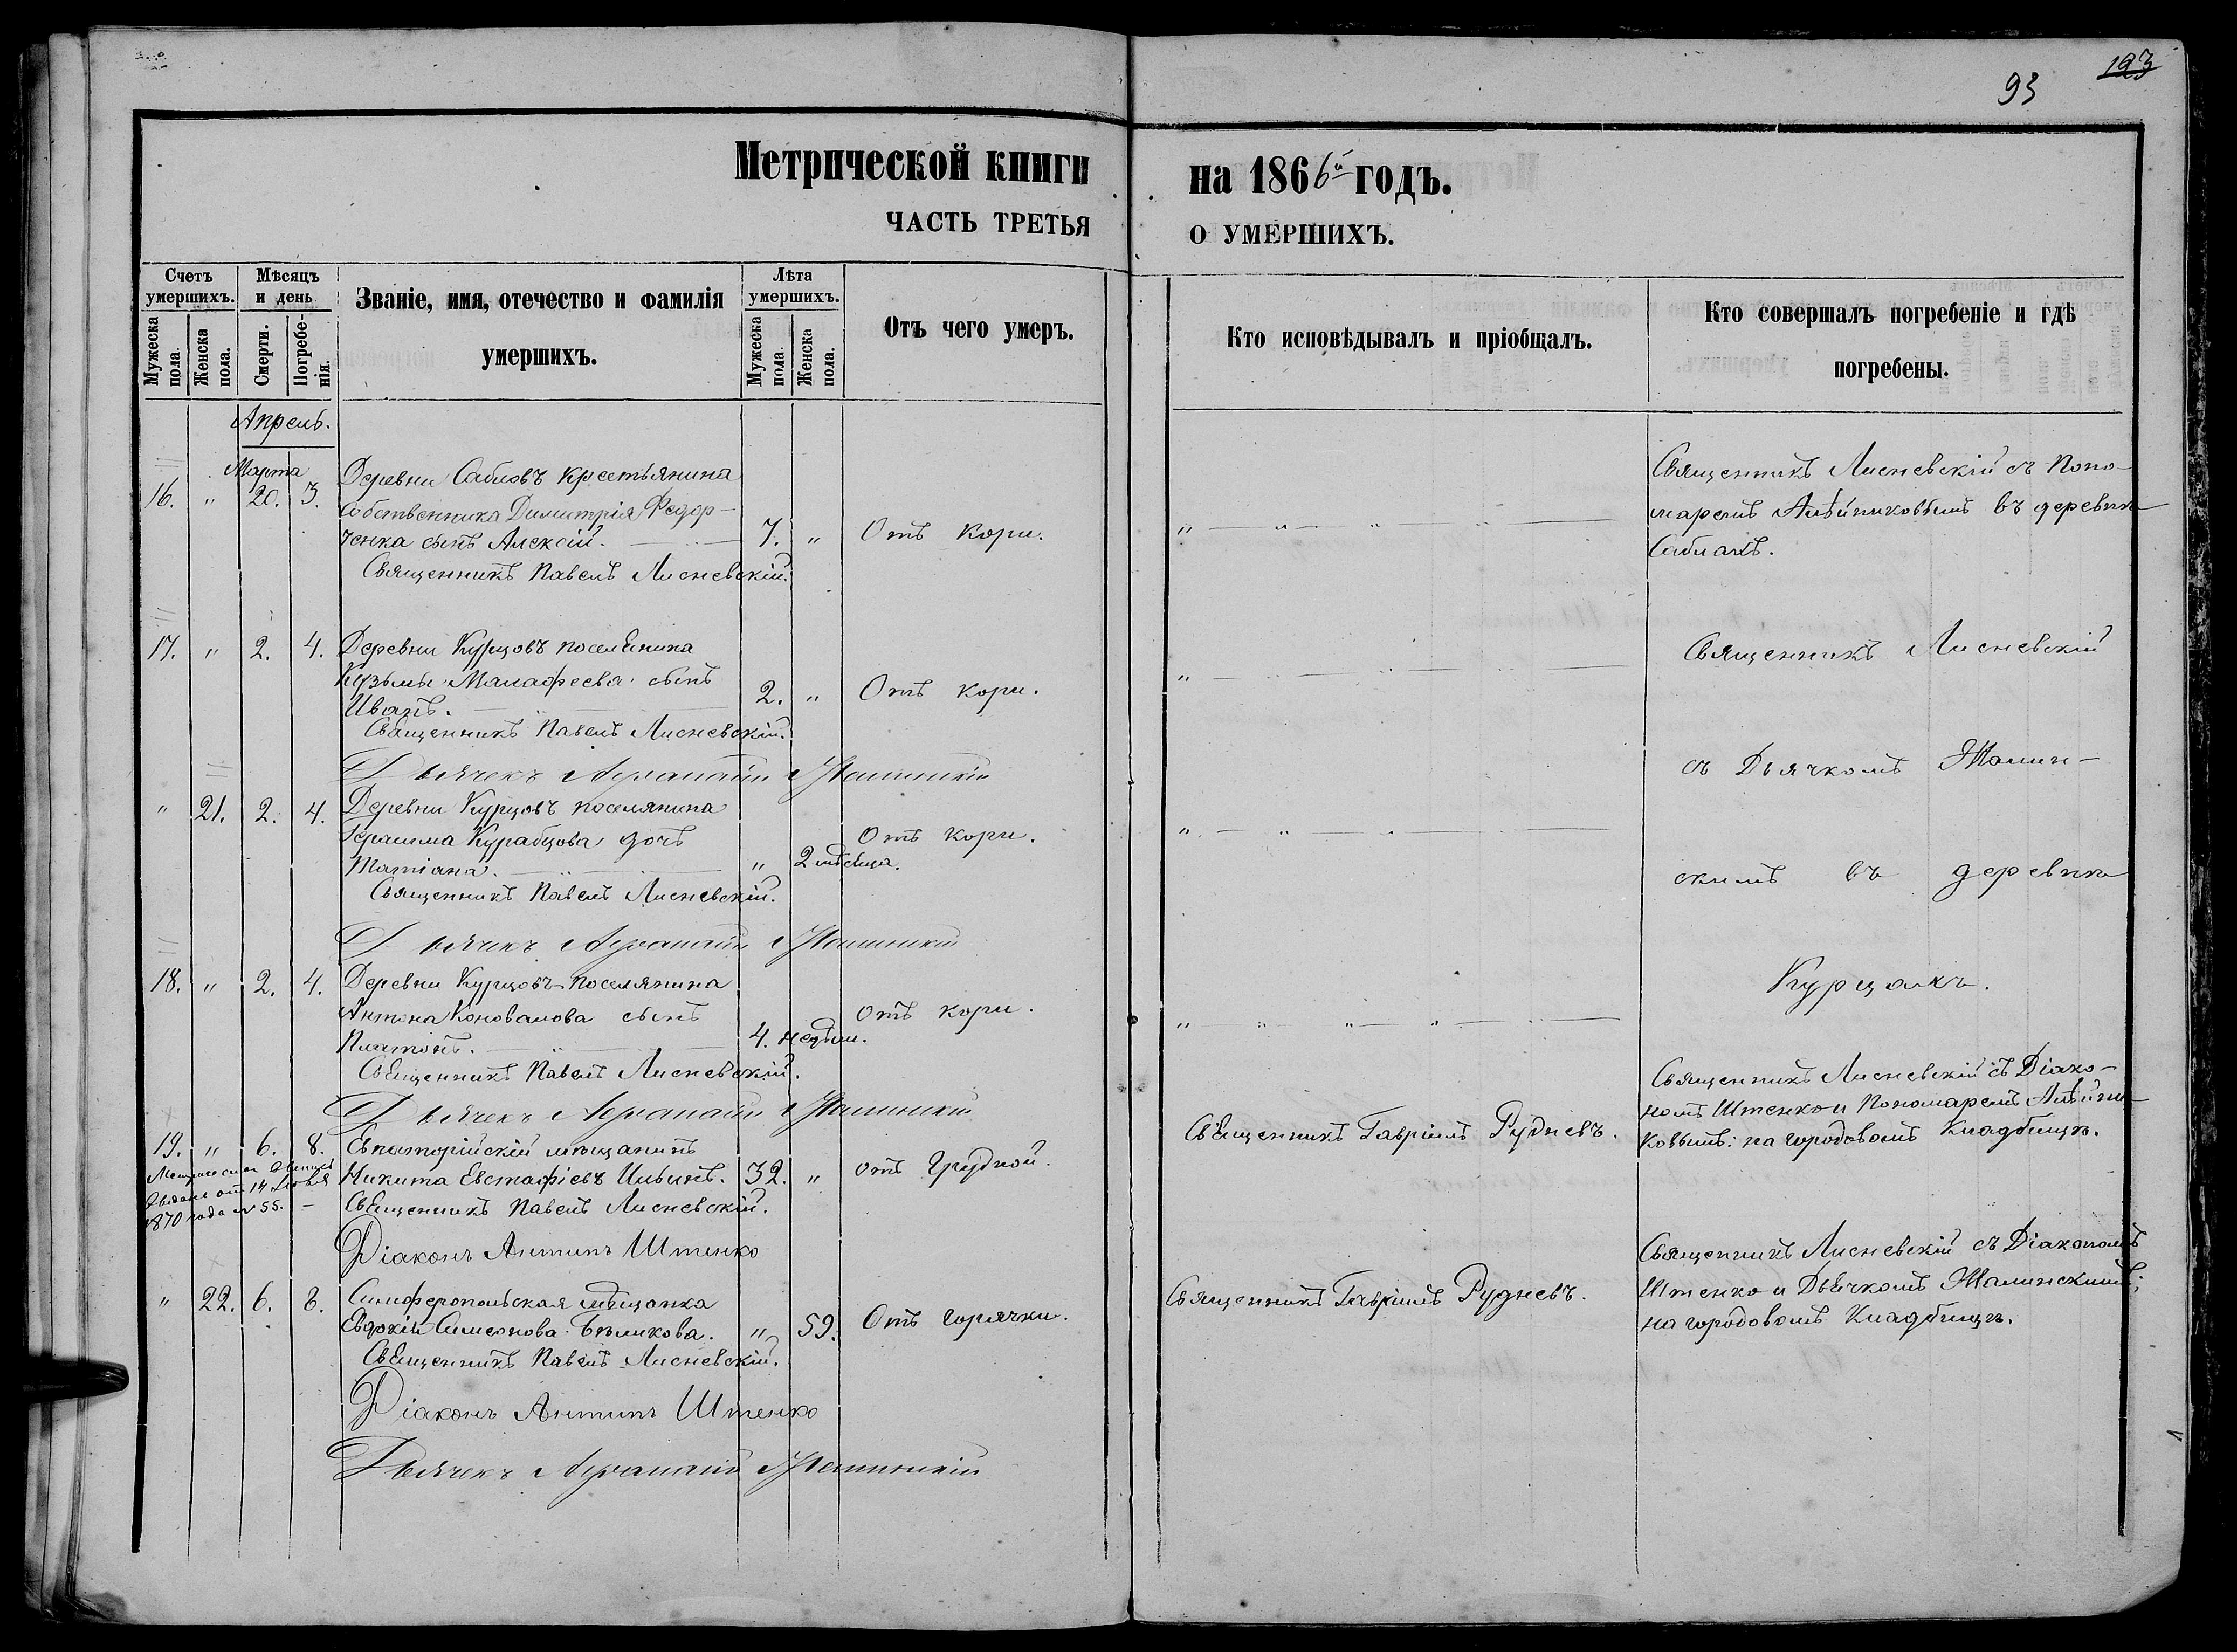 93
123
Метрической книги
на 1866й годъ.
ЧАСТЬ ТРЕТЬЯ
О УМЕРШИХЪ.
Счетъ умершихъ.
Мужеска пола.
Женска пола.
Мѣсяцъ и день
Смерти.
Погребенія.
Званіе, имя, отечество и фамилія
умершихъ.
Лѣта умершихъ.
Мужеска пола.
Женска пола.
Отъ чего умеръ.
Кто исповѣдывалъ и пріобщалъ.
Кто совершалъ погребеніе и гдѣ
погребены.
Апрель.
Марта
16. " 20. 3.
Деревни Сабловъ крестьянина
собственника Димитрія Федор-
ченка сынъ Алексій. 7. " Отъ кори.
Священникъ Павелъ Лисневскій.
Священникъ Лисневскій съ Поно-
маремъ въ деревнѣ
Саблахъ.
17. " 2. 4. Деревни Курцовъ поселянина
Кузьмы Малафеева сынъ
Иванъ. 2. " Отъ кори.
Священникъ Павелъ Лисневскій.
Дьячекъ
Священникъ Лисневскій
съ Дьячкомъ Жалин-
" 21. 2. 4. Деревни Курцовъ поселянина
Герасима дочь Отъ кори.
Татіана. " 2 мѣсяца.
Священникъ Павелъ Лисневскій.
Дьячекъ
скимъ въ деревнѣ
18. " 2. 4. Деревни Курцовъ поселянина
Антона Коновалова сынъ Отъ кори.
Платонъ. 4. недѣли.
Священникъ Павелъ Лисневскій.
Дьячекъ
Курцахъ.
19. " 6. 8. Евпаторійскій мѣщанинъ
Никита Евстафіевъ Ильинъ. 32. " отъ Грудной.
Священникъ Павелъ Лисневскій.
Діаконъ Антипъ Штенко
отъ 14
1870 года № 55.
Священникъ Гавріилъ Рудневъ.
Священникъ Лисневскій съ Діако-
номъ Штенко и Пономаремъ
ковымъ: на городовомъ Кладбищѣ.
" 22. 6. 8. Симферопольская мѣщанка
Евдокія Симеонова Бѣликова. " 59. Отъ горячки.
Священникъ Павелъ Лисневскій.
Діаконъ Антипъ Штенко
Дьячекъ
Священникъ Гавріилъ Рудневъ.
Священникъ Лисневскій съ Діакономъ
Штенко и Дьячкомъ Жалинскимъ:
на городовомъ Кладбищѣ.